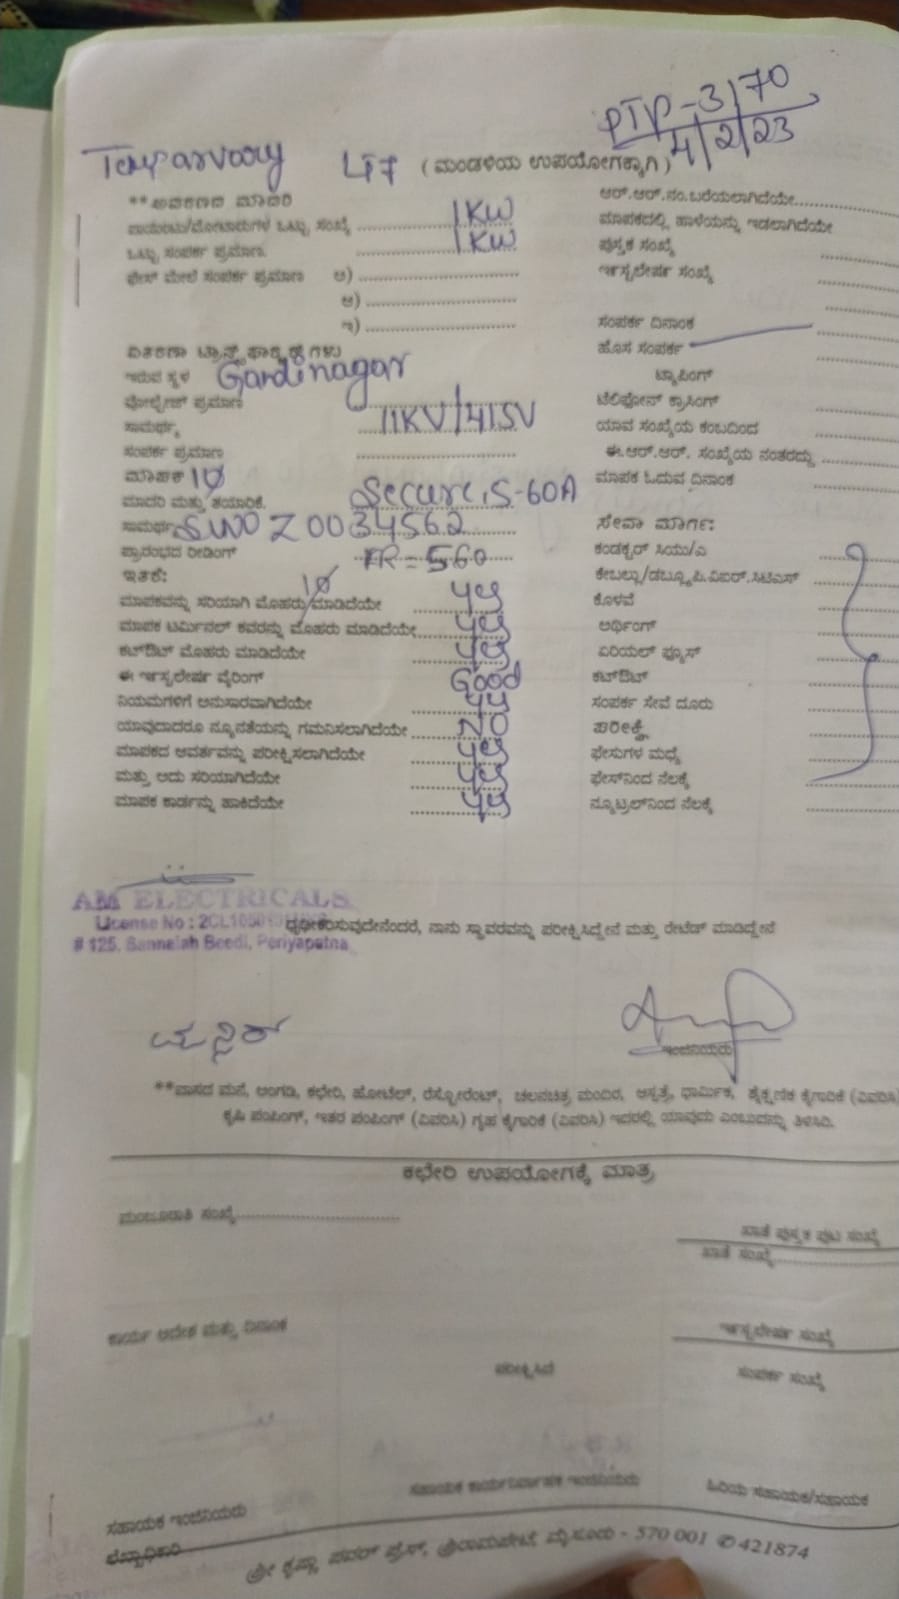 PTP-3170
4/2/23
Temparvory LT7 (ಮಂಡಳಿಯ ಉಪಯೋಗಕ್ಕಾಗಿ)
ಆರ್.ಆರ್.ನಂ.ಬರೆಯಲಾಗಿದೆಯೇ
ಮಾಪಕದಲ್ಲಿ ಹಾಳೆಯನ್ನು ಇಡಲಾಗಿದೆಯೇ
1KW
ಒಟ್ಟು ಸಂಪರ್ಕ ಪ್ರಮಾಣ 1KW
ಪುಸ್ತಕ ಸಂಖ್ಯೆ
ಫೇಸ್ ಮೇಲೆ ಸಂಪರ್ಕ ಪ್ರಮಾಣ ಅ)
ಆ)
ಇ)
ಸಂಪರ್ಕ ದಿನಾಂಕ
ಹೊಸ ಸಂಪರ್ಕ
ಇರುವ ಸ್ಥಳ Gandinagar
ಟ್ಯಾಪಿಂಗ್
ವೋಲ್ಟೇಜ್ ಪ್ರಮಾಣ 11KV/415V
ಟೆಲಿಫೋನ್ ಕ್ರಾಸಿಂಗ್
ಸಾಮರ್ಥ್ಯ
ಯಾವ ಸಂಖ್ಯೆಯ ಕಂಬದಿಂದ
ಸಂಪರ್ಕ ಪ್ರಮಾಣ
ಈ.ಆರ್.ಆರ್. ಸಂಖ್ಯೆಯ ನಂತರದ್ದು
ಮಾಪಕ 1Ø
ಮಾಪಕ ಓದುವ ದಿನಾಂಕ
ಮಾದರಿ ಮತ್ತು ತಯಾರಿಕೆ Secure, 5-60A
ಸಾಮರ್ಥ್ಯ SNO Z0034562
ಸೇವಾ ಮಾರ್ಗ:
ಪ್ರಾರಂಭದ ರೀಡಿಂಗ್ IR = 560
ಕಂಡಕ್ಟರ್ ಸಿಯು/ಎ
ಇತರೆ:
ಮಾಪಕವನ್ನು ಸರಿಯಾಗಿ ಮೊಹರು ಮಾಡಿದೆಯೇ 1Ø ys
ಕೊಳವೆ
ಮಾಪಕ ಟರ್ಮಿನಲ್ ಕವರನ್ನು ಮೊಹರು ಮಾಡಿದೆಯೇ ys
ಅರ್ಥಿಂಗ್
ಕಟ್‌ಔಟ್ ಮೊಹರು ಮಾಡಿದೆಯೇ ys
ಏರಿಯಲ್ ಫ್ಯೂಸ್
ಈ ಇನ್ಸ್ಟಲೇಷನ್ ವೈರಿಂಗ್ Good
ಕಟ್‌ಔಟ್
ನಿಯಮಗಳಿಗೆ ಅನುಸಾರವಾಗಿದೆಯೇ ys
ಸಂಪರ್ಕ ಸೇವೆ ದೂರು
ಯಾವುದಾದರೂ ನ್ಯೂನತೆಯನ್ನು ಗಮನಿಸಲಾಗಿದೆಯೇ NO
ಪರೀಕ್ಷೆ
ಮಾಪಕದ ಆವರ್ತವನ್ನು ಪರೀಕ್ಷಿಸಲಾಗಿದೆಯೇ ys
ಫೇಸುಗಳ ಮಧ್ಯೆ
ಮತ್ತು ಅದು ಸರಿಯಾಗಿದೆಯೇ ys
ಫೇಸ್‌ನಿಂದ ನೆಲಕ್ಕೆ
ಮಾಪಕ ಕಾರ್ಡನ್ನು ಹಾಕಿದೆಯೇ ys
ನ್ಯೂಟ್ರಲ್‌ನಿಂದ ನೆಲಕ್ಕೆ
AM ELECTRICALS
License No : 2CL
# 125, Sannaiah Beedi, Periyapatna
ಧೃಢೀಕರಿಸುವುದೇನೆಂದರೆ, ನಾನು ಸ್ಥಾವರವನ್ನು ಪರೀಕ್ಷಿಸಿದ್ದೇನೆ ಮತ್ತು ರೇಟೆಡ್ ಮಾಡಿದ್ದೇನೆ
ಇಂಜಿನಿಯರು
**ವಾಸದ ಮನೆ, ಅಂಗಡಿ, ಕಛೇರಿ, ಹೋಟೆಲ್, ರೆಸ್ಟೋರೆಂಟ್, ಚಲನಚಿತ್ರ ಮಂದಿರ, ಆಸ್ಪತ್ರೆ, ಧಾರ್ಮಿಕ, ಶೈಕ್ಷಣಿಕ ಕೈಗಾರಿಕೆ (ವಿವರಿಸಿ)
ಕೃಷಿ ಪಂಪಿಂಗ್, ಇತರ ಪಂಪಿಂಗ್ (ವಿವರಿಸಿ) ಗೃಹ ಕೈಗಾರಿಕೆ (ವಿವರಿಸಿ) ಇದರಲ್ಲಿ ಯಾವುದು ಎಂಬುದನ್ನು ತಿಳಿಸಿರಿ.
ಕಛೇರಿ ಉಪಯೋಗಕ್ಕೆ ಮಾತ್ರ
ಮಂಜೂರಾತಿ ಸಂಖ್ಯೆ
ಖಾತೆ ಪುಸ್ತಕ ಪುಟ ಸಂಖ್ಯೆ
ಖಾತೆ ಸಂಖ್ಯೆ
ಕಾರ್ಯ ಆದೇಶ ಮತ್ತು ದಿನಾಂಕ
ಇನ್ಸ್ಟಲೇಷನ್ ಸಂಖ್ಯೆ
ಪರೀಕ್ಷಿಸಿದೆ
ಸಂಪರ್ಕ ಸಂಖ್ಯೆ
ಸಹಾಯಕ ಇಂಜಿನಿಯರು
ಸಹಾಯಕ ಕಾರ್ಯನಿರ್ವಾಹಕ ಇಂಜಿನಿಯರು
ಹಿರಿಯ ಸಹಾಯಕ/ಸಹಾಯಕ
ಶ್ರೀ ಕೃಷ್ಣಾ ಪವರ್ ಪ್ರೆಸ್, ಶ್ರೀರಾಮಪೇಟೆ ಮೈಸೂರು - 570 001 ✆ 421874